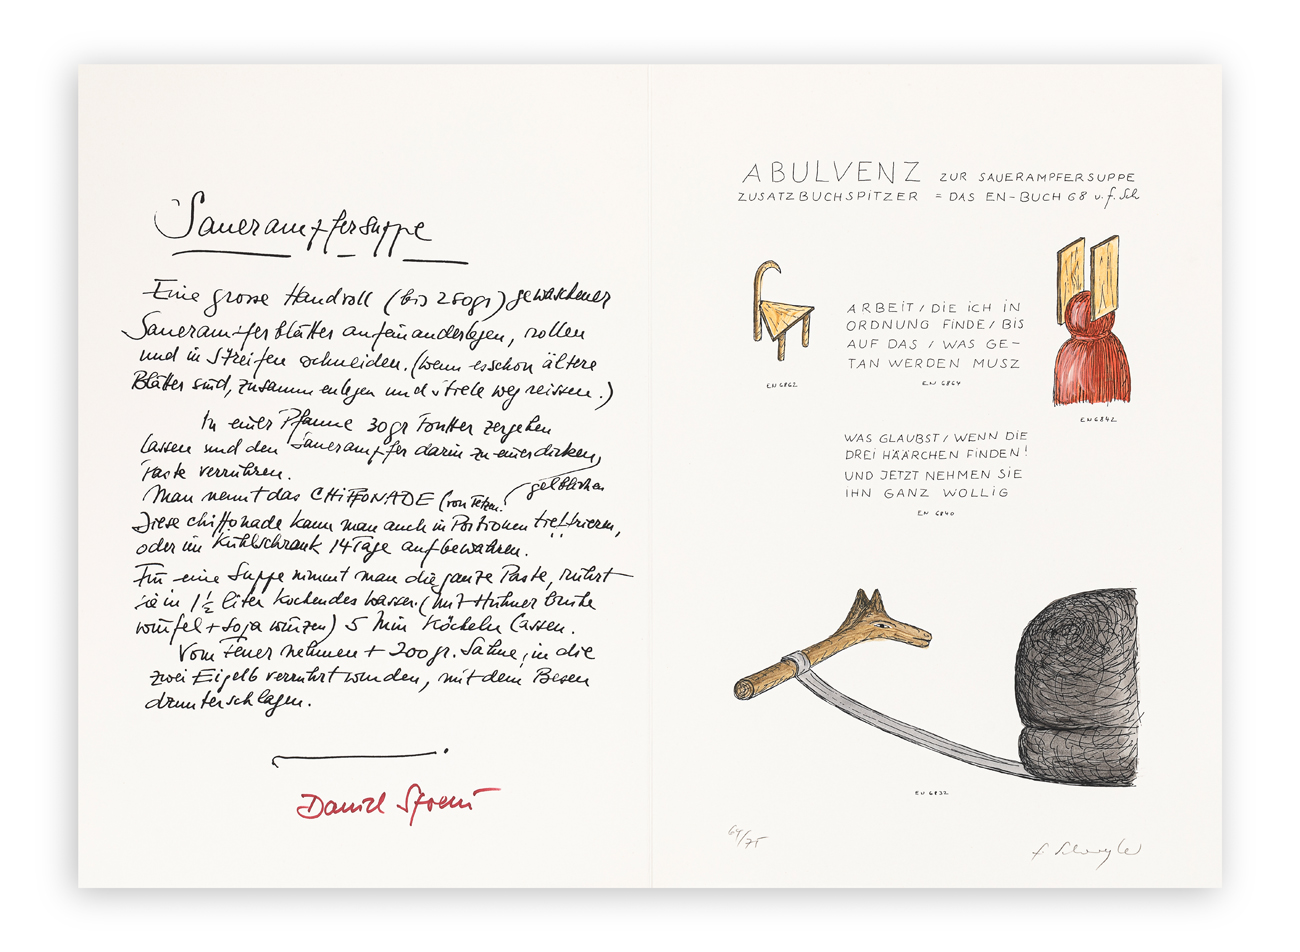 Sauerampfersuppe
Eine grosse Handvoll (bis 250gr) gewaschener
Sauerampferblätter aufeinanderlegen, rollen
und in Streifen schneiden. (wenn es schon ältere
Blätter sind, zusammenlegen und Stiele wegreissen.)
In einer Pfanne 30gr Butter zergehen
lassen und den Sauerampfer darin zu einer dicken,
gelblichen
Paste verrühren.
Man nennt das CHIFFONADE (von Fetzen.
Diese chiffonade kann man auch in Portionen tieffrieren,
oder im Kühlschrank 14 Tage aufbewahren.
Für eine Suppe nimmt man die ganze Paste, rührt
sie in 1½ liter kochendes Wasser. (mit Hühnerbrühe
würfel + Soja würzen) 5 Min Köcheln lassen.
Vom Feuer nehmen + 200gr. Sahne, in die
zwei Eigelb verrührt wurden, mit dem Besen
drunterschlagen.
Daniel Spoerri
ABULVENZ ZUR SAUERAMPFERSUPPE
ZUSATZBUCHSPITZER = DAS EN-BUCH 68 v. f. Sch
ARBEIT / DIE ICH IN
ORDNUNG FINDE / BIS
AUF DAS / WAS GE-
TAN WERDEN MUSZ
EN 6862
EN 6864
EN 6842
WAS GLAUBST / WENN DIE
DREI HÄÄRCHEN FINDEN!
UND JETZT NEHMEN SIE
IHN GANZ WOLLIG
EN 6840
EN 6832
64/75